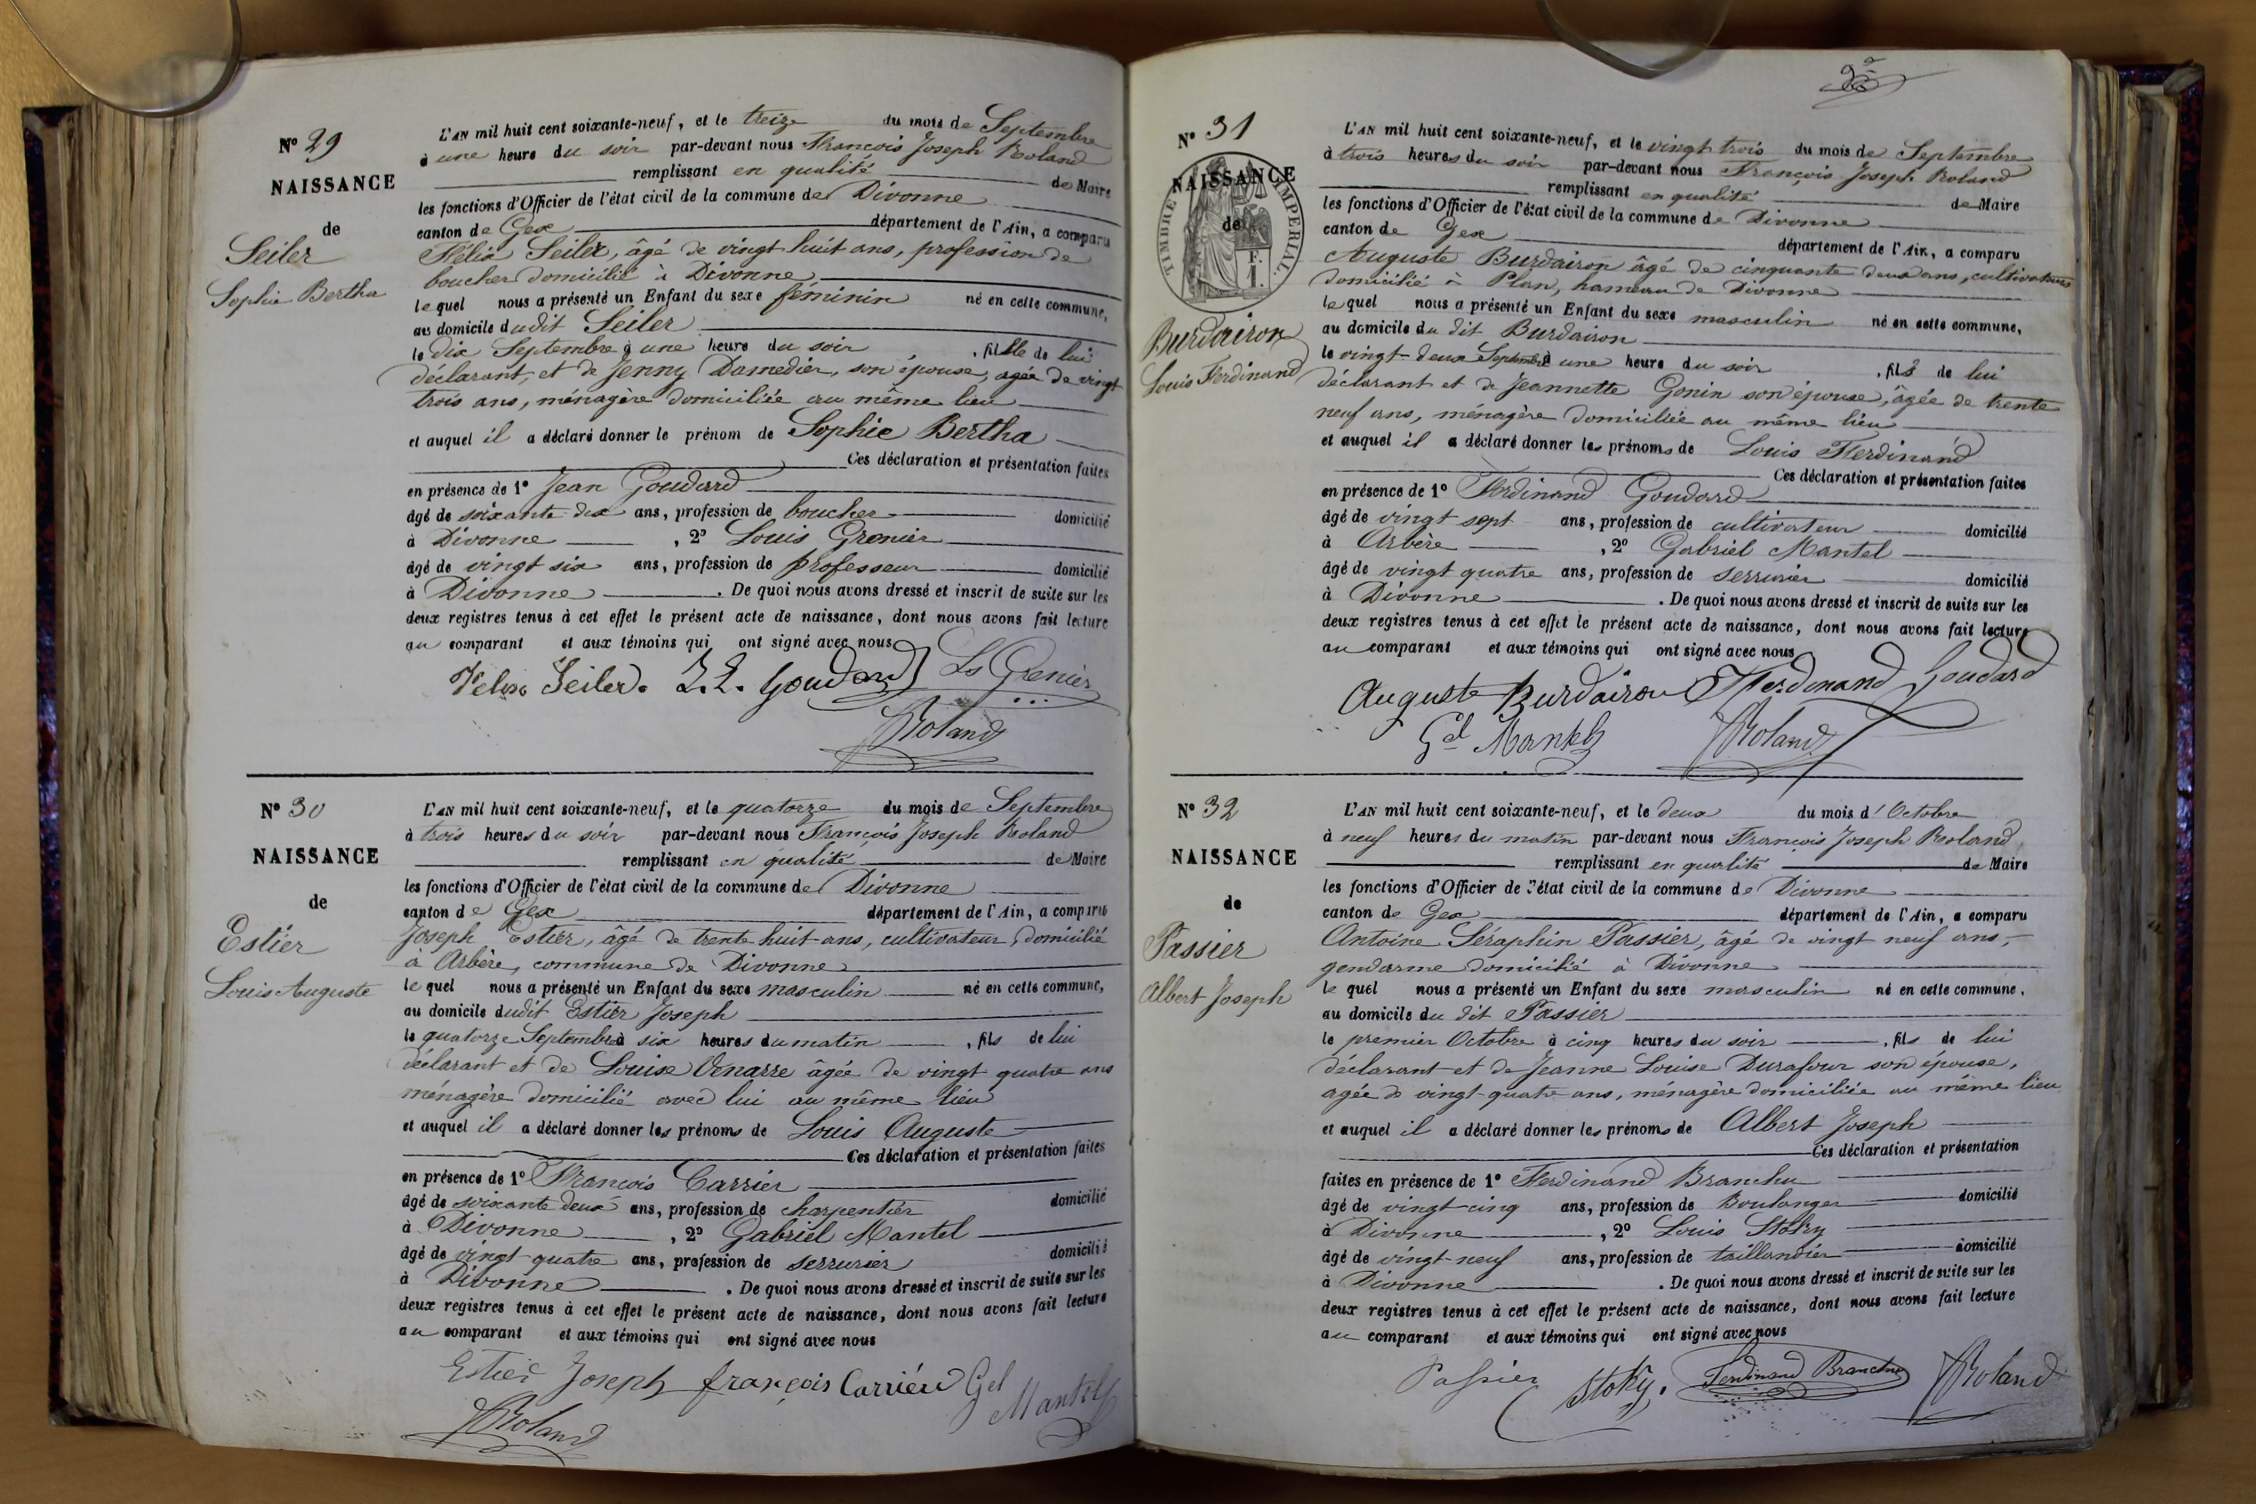 N° 29
NAISSANCE
de
Seiler
Sophie Bertha
L'AN mil huit cent soixante-neuf, et le treize du mois de Septembre
à une heure du soir par-devant nous François Joseph Roland
remplissant en qualité de Maire
les fonctions d'Officier de l'état civil de la commune de Divonne
canton de Gex département de l'Ain, a comparu
Félix Seiler, âgé de vingt huit ans, profession de
boucher domicilié à Divonne
lequel nous a présenté un Enfant du sexe féminin né en cette commune,
au domicile dudit Seiler
le dix Septembre à une heure du soir , fille de lui
déclarant, et de Jenny Damedier, son épouse, agée de vingt
trois ans, ménagère domiciliée au même lieu
et auquel il a déclaré donner le prénom de Sophie Bertha
Ces déclaration et présentation faites
en présence de 1° Jean Goudard
âgé de soixante dix ans, profession de boucher domicilié
à Divonne , 2° Louis Grenier
âgé de vingt six ans, profession de professeur domicilié
à Divonne . De quoi nous avons dressé et inscrit de suite sur les
deux registres tenus à cet effet le présent acte de naissance, dont nous avons fait lecture
au comparant et aux témoins qui ont signé avec nous
Felix Seiler. Goudard Ls Grenier
Roland
N° 30
NAISSANCE
de
Estier
Louis Auguste
L'AN mil huit cent soixante-neuf, et le quatorze du mois de Septembre
à trois heures du soir par-devant nous François Joseph Roland
remplissant en qualité de Maire
les fonctions d'Officier de l'état civil de la commune de Divonne
canton de Gex département de l'Ain, a comparu
Joseph Estier, âgé de trente huit ans, cultivateur, domicilié
à Arbère, commune de Divonne
lequel nous a présenté un Enfant du sexe masculin né en cette commune,
au domicile dudit Estier Joseph
le quatorze Septembre à six heures du matin , fils de lui
déclarant et de Louise Venarre âgée de vingt quatre ans
ménagère domicilié avec lui au même lieu
et auquel il a déclaré donner les prénoms de Louis Auguste
Ces déclaration et présentation faites
en présence de 1° François Carrier
âgé de soixante deux ans, profession de charpentier domicilié
à Divonne , 2° Gabriel Mantel
âgé de vingt quatre ans, profession de serrurier domicilié
à Divonne . De quoi nous avons dressé et inscrit de suite sur les
deux registres tenus à cet effet le présent acte de naissance, dont nous avons fait lecture
au comparant et aux témoins qui ont signé avec nous
Estier Joseph françois Carrier Gel Mantel
Roland
N° 31
TIMBRE IMPERIAL
F.
1.
NAISSANCE
de
Burdairon
Louis Ferdinand
L'AN mil huit cent soixante-neuf, et le vingt trois du mois de Septembre
à trois heures du soir par-devant nous François Joseph Roland
remplissant en qualité de Maire
les fonctions d'Officier de l'état civil de la commune de Divonne
canton de Gex département de l'Ain, a comparu
Auguste Burdairon âgé de cinquante deux ans, cultivateur
domicilié à Plan, hameau de Divonne
lequel nous a présenté un Enfant du sexe masculin né en cette commune,
au domicile du dit Burdairon
le vingt-deux Septembre à une heure du soir , fils de lui
déclarant et de Jeannette Gonin son épouse, âgée de trente
neuf ans, ménagère domiciliée au même lieu
et auquel il a déclaré donner les prénoms de Louis Ferdinand
Ces déclaration et présentation faites
en présence de 1° Ferdinand Goudard
âgé de vingt sept ans, profession de cultivateur domicilié
à Arbère , 2° Gabriel Mantel
âgé de vingt quatre ans, profession de serrurier domicilié
à Divonne . De quoi nous avons dressé et inscrit de suite sur les
deux registres tenus à cet effet le présent acte de naissance, dont nous avons fait lecture
au comparant et aux témoins qui ont signé avec nous
Auguste Burdairon Ferdinand Goudard
Gel Mantel Roland
N° 32
NAISSANCE
de
Passier
Albert Joseph
L'AN mil huit cent soixante-neuf, et le deux du mois d'Octobre
à neuf heures du matin par-devant nous François Joseph Roland
remplissant en qualité de Maire
les fonctions d'Officier de l'état civil de la commune de Divonne
canton de Gex département de l'Ain, a comparu
Antoine Séraphin Passier, âgé de vingt neuf ans,
gendarme domicilié à Divonne
lequel nous a présenté un Enfant du sexe masculin né en cette commune,
au domicile du dit Passier
le premier Octobre à cinq heures du soir , fils de lui
déclarant et de Jeanne Louise Durafour son épouse,
agée de vingt-quatre ans, ménagère domiciliée au même lieu
et auquel il a déclaré donner les prénoms de Albert Joseph
Ces déclaration et présentation
faites en présence de 1° Ferdinand Branchu
âgé de vingt-cinq ans, profession de Boulanger domicilié
à Divonne , 2° Louis Stoky
âgé de vingt-neuf ans, profession de taillandier domicilié
à Divonne . De quoi nous avons dressé et inscrit de suite sur les
deux registres tenus à cet effet le présent acte de naissance, dont nous avons fait lecture
au comparant et aux témoins qui ont signé avec nous
Passier Stoky. Ferdinand Branchu Roland